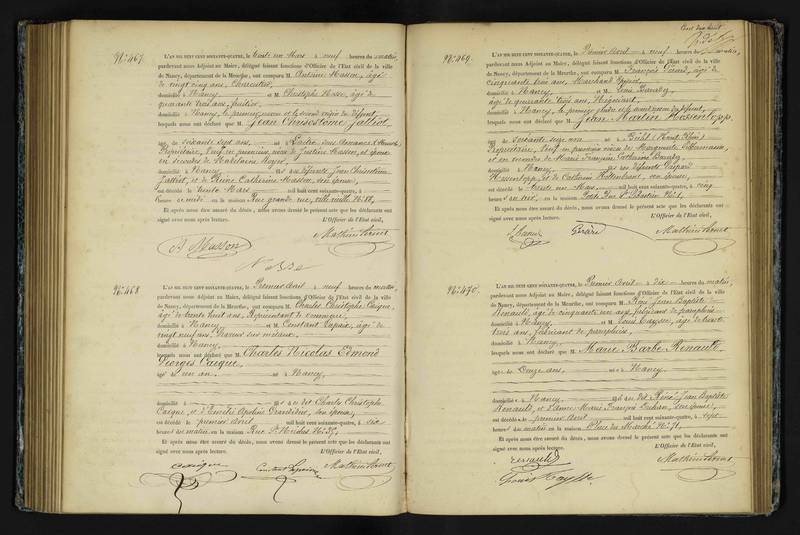 No. 467.
L'AN MIL HUIT CENT SOIXANTE-QUATRE, le trente un Mars à neuf heures du matin,
pardevant nous Adjoint au Maire, délégué faisant fonctions d'Officier de l'Etat civil de la ville
de Nancy, département de la Meurthe, ont comparu M. Antoine Masson, âgé
de vingt cinq ans, Charcutier,
domicilié à Nancy et M. Christophe Nasse, âgé de
quarante trois ans,
domicilié à Nancy, le premier neveu et le second voisin du défunt,
lesquels nous ont déclaré que M. Jean Chrisostôme Jalliot,
âgé de soixante sept ans, né à
Propriétaire, veuf en premières noces de Justine Masson, et époux
en secondes de Madelaine
domicilié à Nancy fils de défunts Jean Chrisostôme
Jalliot, et de Reine Catherine Masson, son épouse,
est décédé le trente Mars mil huit cent soixante-quatre, à
heures du matin en la maison Rue grande rue, ville vieille No. 18,
Et après nous être assuré du décès, nous avons dressé le présent acte que les déclarants ont
signé avec nous après lecture. L'Officier de l'Etat civil,
A. Masson
Mathieu
Nasse
No. 468
L'AN MIL HUIT CENT SOIXANTE-QUATRE, le Premier Avril à neuf heures du matin,
pardevant nous Adjoint au Maire, délégué faisant fonctions d'Officier de l'Etat civil de la ville
de Nancy, département de la Meurthe, ont comparu M. Charles Christophe Caïque,
âgé de trente huit ans, Représentant de commerce,
domicilié à Nancy et M. Constant Lapaix, âgé de
vingt neuf ans, Graveur sur métaux,
domicilié à Nancy,
lesquels nous ont déclaré que M. Charles Nicolas Edmond
Georges Caïque,
âgé de un an, né à Nancy,
domicilié à fils du dit Charles Christophe
Caïque, et d'Amélie Apoline son épouse,
est décédé le premier avril mil huit cent soixante-quatre, à six
heures du matin en la maison Rue St. Nicolas No. 37,
Et après nous être assuré du décès, nous avons dressé le présent acte que les déclarants ont
signé avec nous après lecture. L'Officier de l'Etat civil,
Caïque
Constant Lapaix
Mathieu
Cent dix huit
No. 469.
L'AN MIL HUIT CENT SOIXANTE-QUATRE, le Premier Avril à neuf heures du matin,
pardevant nous Adjoint au Maire, délégué faisant fonctions d'Officier de l'Etat civil de la ville
de Nancy, département de la Meurthe, ont comparu M. François Gérard, âgé de
cinquante trois ans, Marchand
domicilié à Nancy et M. Louis
âgé de quarante trois ans, Négociant,
domicilié à Nancy, le premier
lesquels nous ont déclaré que M. Jean Martin
âgé de soixante seize ans né à Brühl (Haut Rhin)
Propriétaire, veuf en premières noces de Marguerite
et en secondes de Marie Françoise Catherine
domicilié à Nancy, fils de défunts Gaspard
et de Catherine son épouse,
est décédé le trente un Mars mil huit cent soixante-quatre, à cinq
heures du soir, en la maison Petite Rue St. Sébastien No. 1,
Et après nous être assuré du décès, nous avons dressé le présent acte que les déclarants ont
signé avec nous après lecture. L'Officier de l'Etat civil,
Gérard
Mathieu
No. 470.
L'AN MIL HUIT CENT SOIXANTE-QUATRE, le Premier Avril à dix heures du matin,
pardevant nous Adjoint au Maire, délégué faisant fonctions d'Officier de l'Etat civil de la ville
de Nancy, département de la Meurthe, ont comparu M. René Jean Baptiste
Renauld, âgé de cinquante un ans, fabricant de parapluies
domicilié à Nancy et M. Louis Caysse, âgé de trente
trois ans, fabricant de parapluies,
domicilié à Nancy,
lesquels nous ont déclaré que M. Marie Barbe Renauld,
âgée de Onze ans, née à Nancy,
domiciliée à Nancy fille du dit René Jean Baptiste
Renauld, et d'Anne Marie François son épouse,
est décédée le premier Avril mil huit cent soixante-quatre, à sept
heures du matin en la maison Place du Marché No. 71,
Et après nous être assuré du décès, nous avons dressé le présent acte que les déclarants ont
signé avec nous après lecture. L'Officier de l'Etat civil,
Renauld
Mathieu
Louis Caysse